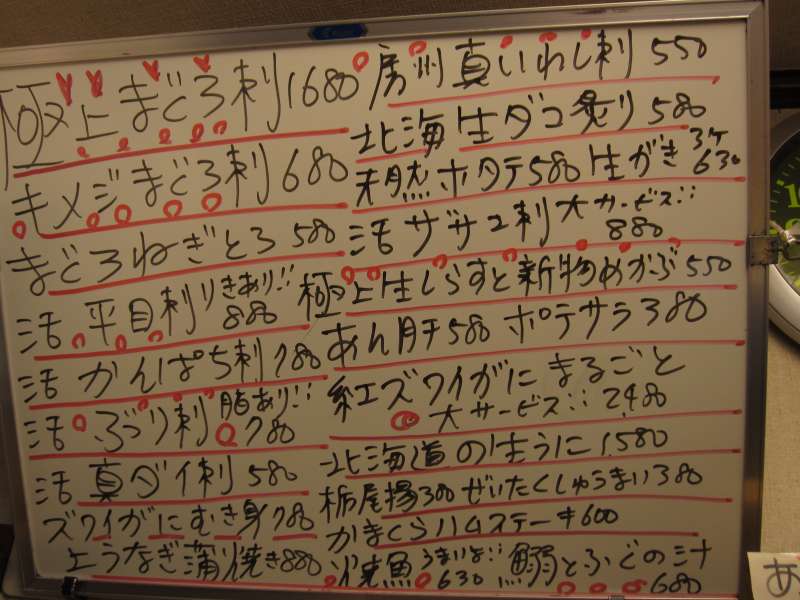 極上まぐろ刺1680
キメジまぐろ刺680
まぐろねぎとろ580
活平目刺りきあり!!880
活かんぱち刺780
活ぶり刺脂あり!!780
活真ダイ刺580
ズワイがにむき身780
上うなぎ蒲焼き880
房州真いわし刺550
北海生ダコ炙り580
ホタテ580生がき3ケ630
活サザエ刺大サービス!!880
極上生しらすと新物めかぶ550
あん肝580ポテサラ380
紅ズワイがにまるごと
大サービス!!2,480
北海道の生うに1,580
栃尾揚380ぜいたくしゅうまい380
かまくらハムステーキ600
焼魚うまいよ!!630
とふぐの汁680
あ